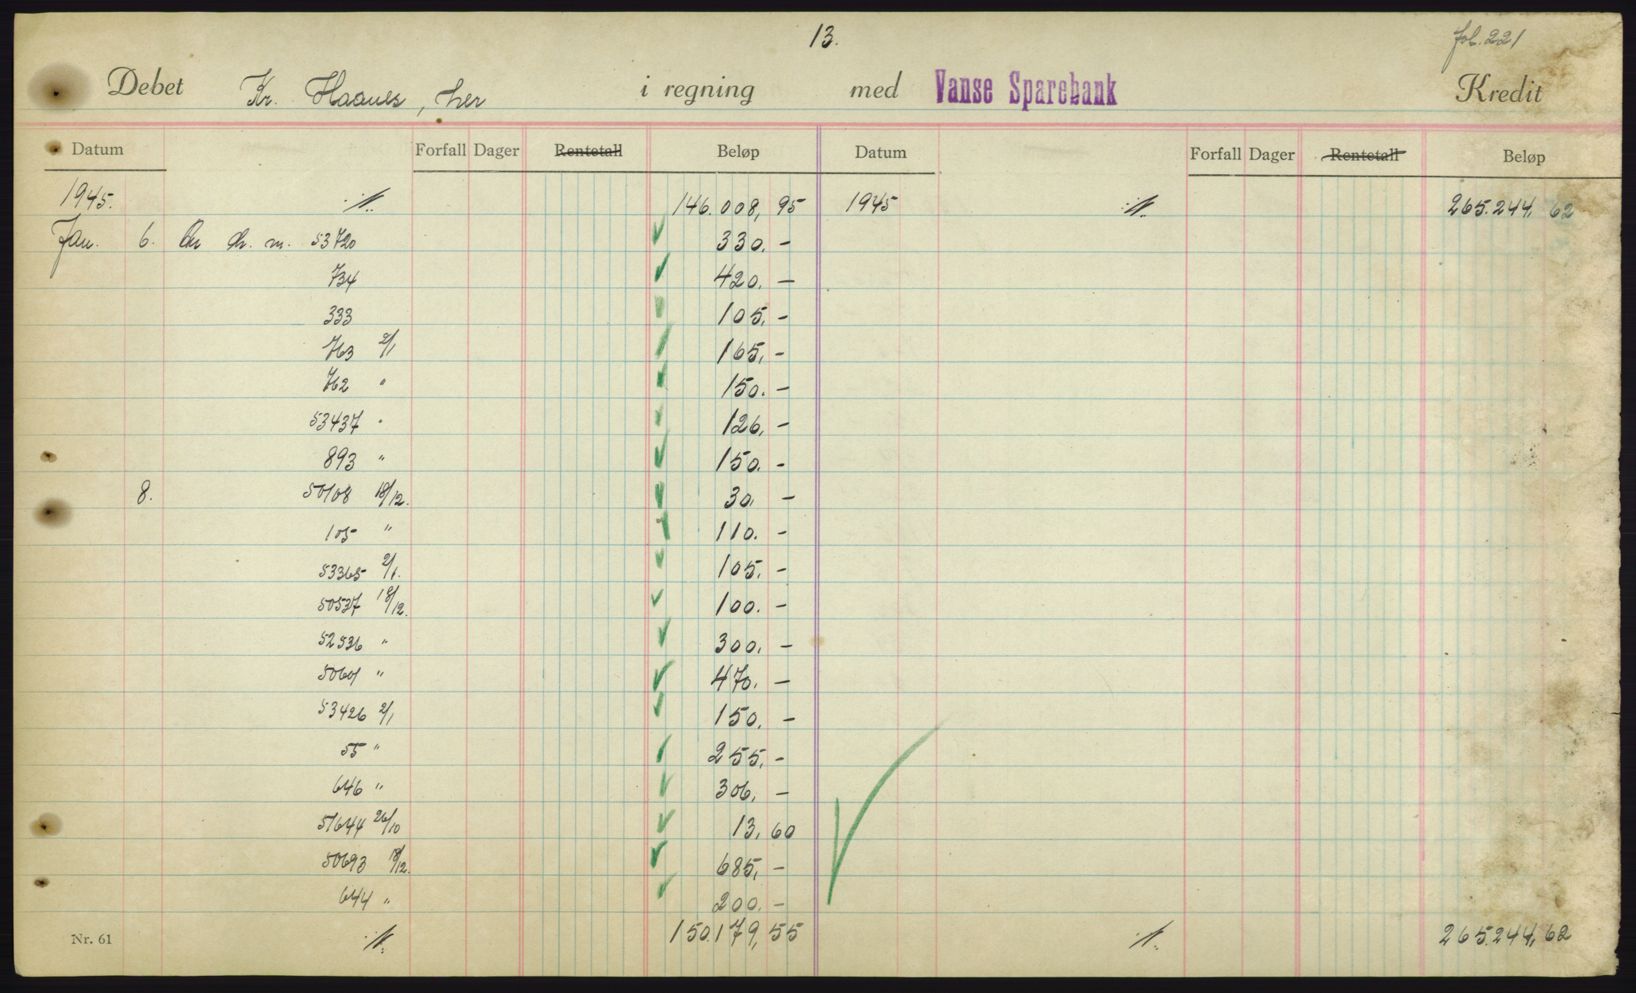 13.
fol. 221
Debet Kr. Haanes, her i regning med Vanse Sparebank Kredit
Datum Forfall Dager Rentetall Beløp Datum Forfall Dager Rentetall Beløp
1945. ·/. 146.008,95 1945 ·/. 265.244,62
Jan. 6. An ch. m. 53720 330.-
734 420.-
333 105,-
763 2/1 165,-
762 " 150.-
53437 " 126,-
893 " 150.-
8. 50108 18/12. 30,-
105 " 110.-
53365 2/1. 105.-
50537 18/12. 100.-
52536 " 300.-
50601 " 470.-
53426 2/1 150.-
55 " 255,-
646 " 306,-
51644 26/10 13,60
50693 18/12. 685,-
644 " 200.-
Nr. 61 ·/. 150.179,55 ·/. 265.244,62